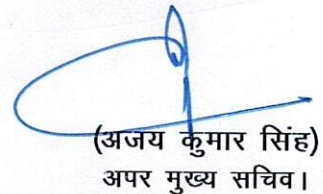 (अजय कुमार सिंह)
अपर मुख्य सचिव।